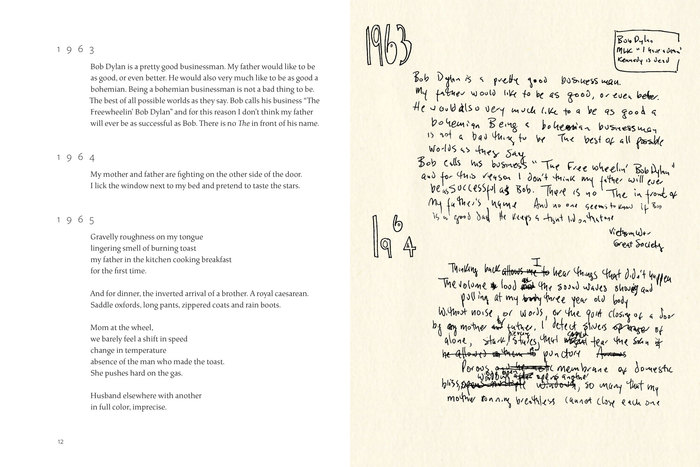 1963
Bob Dylan is a pretty good businessman. My father would like to be
as good, or even better. He would also very much like to be as good a
bohemian. Being a bohemian businessman is not a bad thing to be.
The best of all possible worlds as they say. Bob calls his business “The
Freewheelin’ Bob Dylan” and for this reason I don’t think my father
will ever be as successful as Bob. There is no The in front of his name.
1964
My mother and father are fighting on the other side of the door.
I lick the window next to my bed and pretend to taste the stars.
1965
Gravelly roughness on my tongue
lingering smell of burning toast
my father in the kitchen cooking breakfast
for the first time.
And for dinner, the inverted arrival of a brother. A royal caesarean.
Saddle oxfords, long pants, zippered coats and rain boots.
Mom at the wheel,
we barely feel a shift in speed
change in temperature
absence of the man who made the toast.
She pushes hard on the gas.
Husband elsewhere with another
in full color, imprecise.
12
1963
Bob Dylan
MLK "I have a dream"
Kennedy is dead
Bob Dylan is a pretty good businessman
My father would like to be as good, or even better.
He would also very much like to be as good a
bohemian Being a bohemian businessman
is not a bad thing to be The best of all possible
worlds as they say
Bob calls his business "The Free wheelin' Bob Dylan"
and for this reason I don't think my father will ever
be as successful as Bob. There is no The in front of
my father's name And no one seems to know if Bob
is a good dad He keeps a tight
Vietnam War
Great Society
1964
Thinking back allows me to I hear things that didn't happen
The volume loud as the sound waves shoving and
pulling at my body three year old body
Without noise or words, or the quiet closing of a door
by my mother father, I detect slivers of
alone, stark that tear the skin
he allowed them to puncture
Porous membrane of domestic
bliss, windows, so many that my
mother running breathless cannot close each one